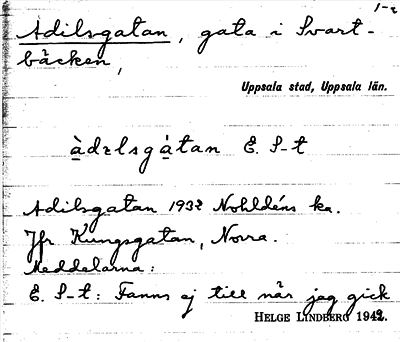 1-2
Adilsgatan, gata i Svart-
bäcken,
Uppsala stad, Uppsala län.
àdɩlsgàtan E. S-t
Adilsgatan 1932 Nohldéns ka.
Jfr Kungsgatan, Norra.
Meddelarna:
E. S-t: Fanns ej till när jag gick
HELGE LINDBERG 1942.